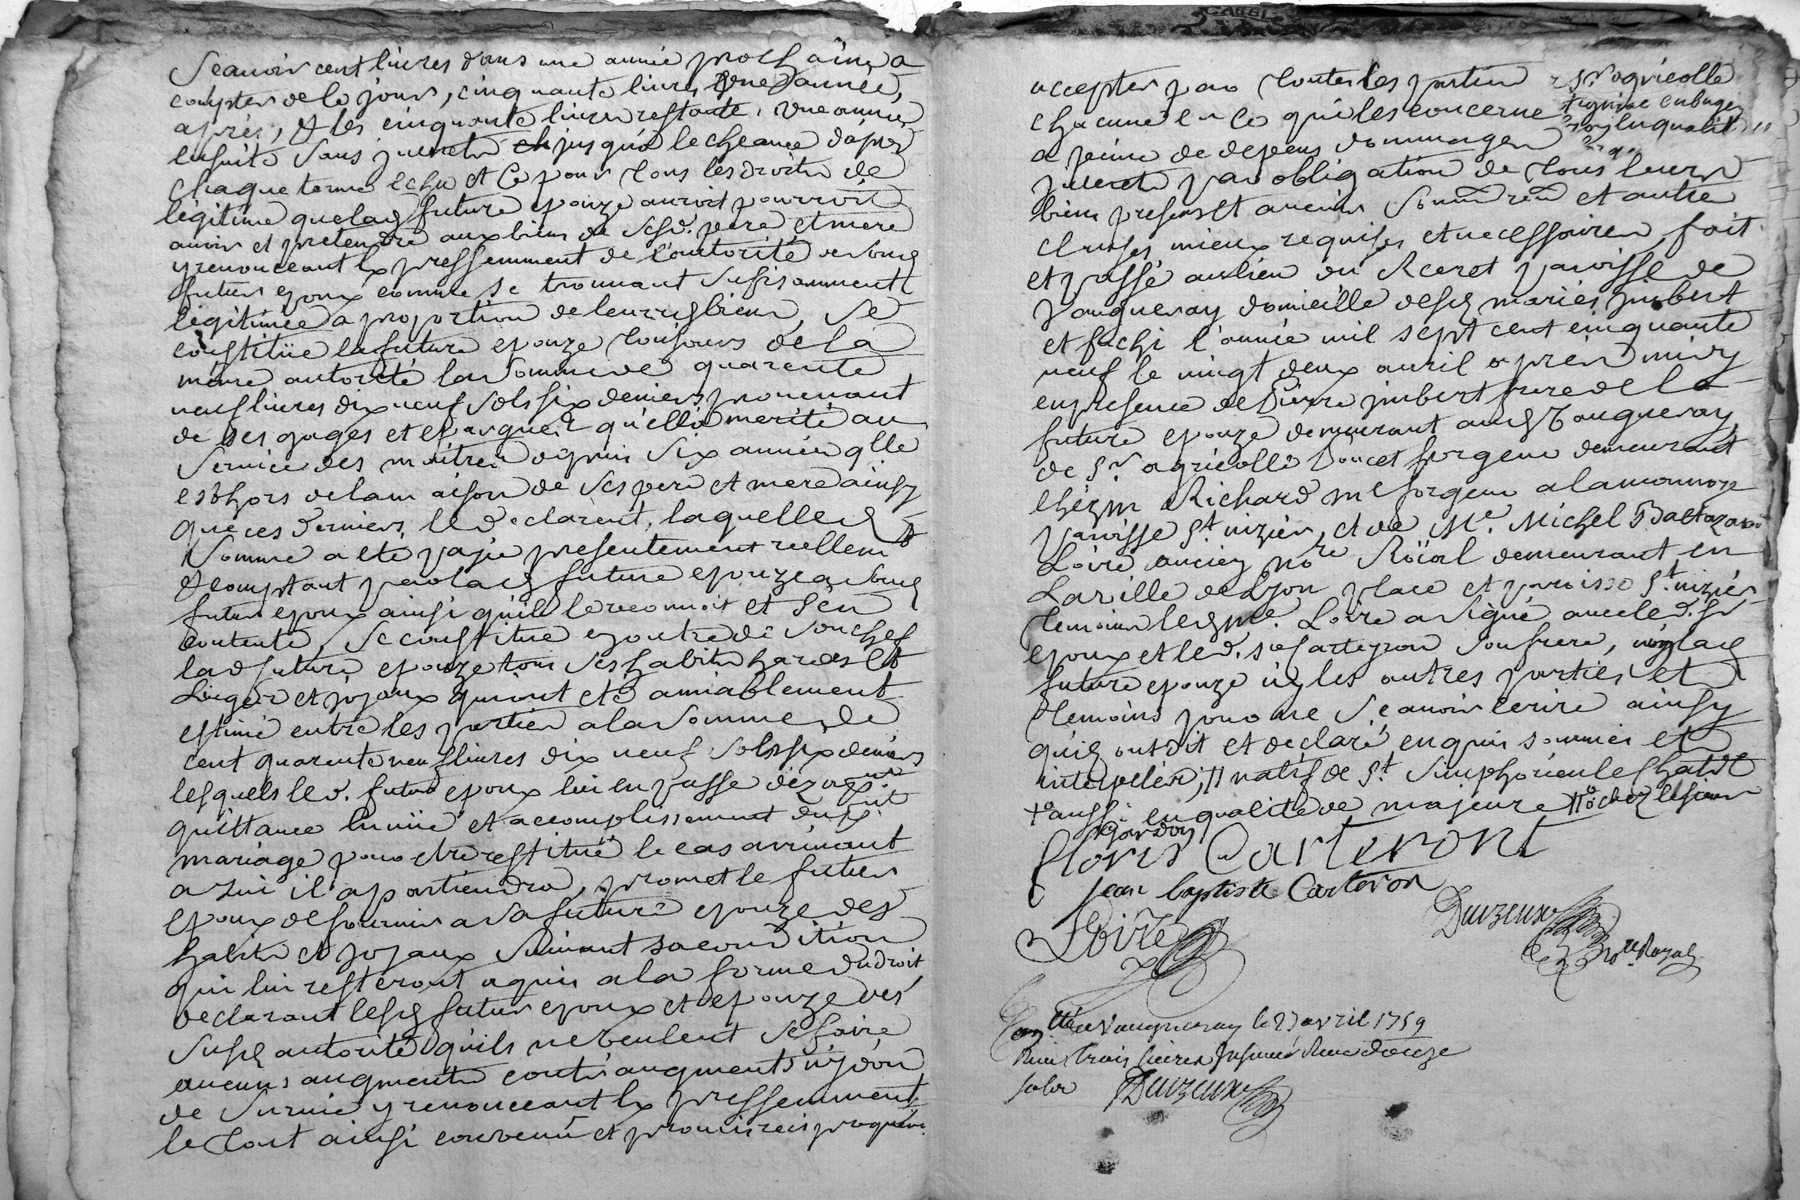 Scauoir cent liures dans une année prochaine a
compter de le jour, cinquante liures Vne année,
aprés, & les cinquante liures restante, Vne année
ensuite sans jnterets jusqua lecheance dapres
chaque terme echu et Ce pour tous les droits de
légitime que lad future epouze auroit pourroit
auoir et pretendre aux biens de sesd. pere et mere
y renonceant Ex pressemment de l'autorité de sond
futur epoux comme se trouuant sufisamment
légitimée a proportion de leursd biens, se
constitüe la future epouze toujours de la
même autorité la somme de quarente
neuf liures dix neuf sols six deniers prouenant
de ses gages et epargnes qu'elle a merité au
Seruice des maitres depuis six années qlle
est hors de la maison de ses pere et mere ainsy
que ces derniers le declarent, laquelle d
Somme a eté payée presentement reellemt
& comptant par lad future epouze a sond
futur epoux ainsi qu'il le reconnoit et s'en
contente, se constitue en outre de son chef
lad future epouze tous ses habits hardes et
Linges et joyaux qui ont eté amiablement
estimé entre les parties a la somme de
cent quarente neuf liures dix neuf sols six deniers
lesquels led. futur epoux lui en passe
quittance et accomplissement dud
mariage pour etre restitué le cas arriuant
a qui il apartiendra, promet le futur
epoux de fournir a sa future epouze des
habits et joyaux suiuant sa condition
qui lui resteront aquis a la forme du droit
declarant lesd futurs epoux et epouze des
susd autorité qu'ils ne veulent se faire
aucuns augments contr'augments ny don
de suruie y renonceant Ex pressemment
le tout ainsi conuenu et promis reciproquemt
accepter par toutes les parties
chacune en ce qui les concerne
a peine de depens dommages
jnterets par obligation de tous leurs
biens presens et auenir et autre
clauses mieux requises et necessaires, fait
et passé au lieu du paroisse de
Vaugneray domicille desd mariés jmbert
et l'année mil sept cent cinquante
neuf le vingt deux auril apres midy
en presence de Pierre jmbert frere de la
future epouze demeurant aud Vaugneray
de Sr. agricolle forgeur demeurant
chéz Sr Richard me forgeur a la monnoye
paroisse St. nizier, et de Me. Michel Baltazard
Loire ancien nore Roïal demeurant en
La ville de Lyon place et paroisse St. nizier
temoins lesd Me. Loire a signé auec led. fr
epoux et led. Carteron son frere, non lad
future epouze ny les autres parties et
temoins pour ne scauoir écrire ainsy
quils ont dit et declaré enquis sommés et
interpellés, // natif de St. Simphorien le Chatel
+o aussi en qualité de majeure #o chez le sieur
floris Carteront
jean baptiste Carteron
Loire
Duvzeux
Nore. Royal
a Vaugneray le 23 avril 1759
trois liures douze
sols Duvzeux